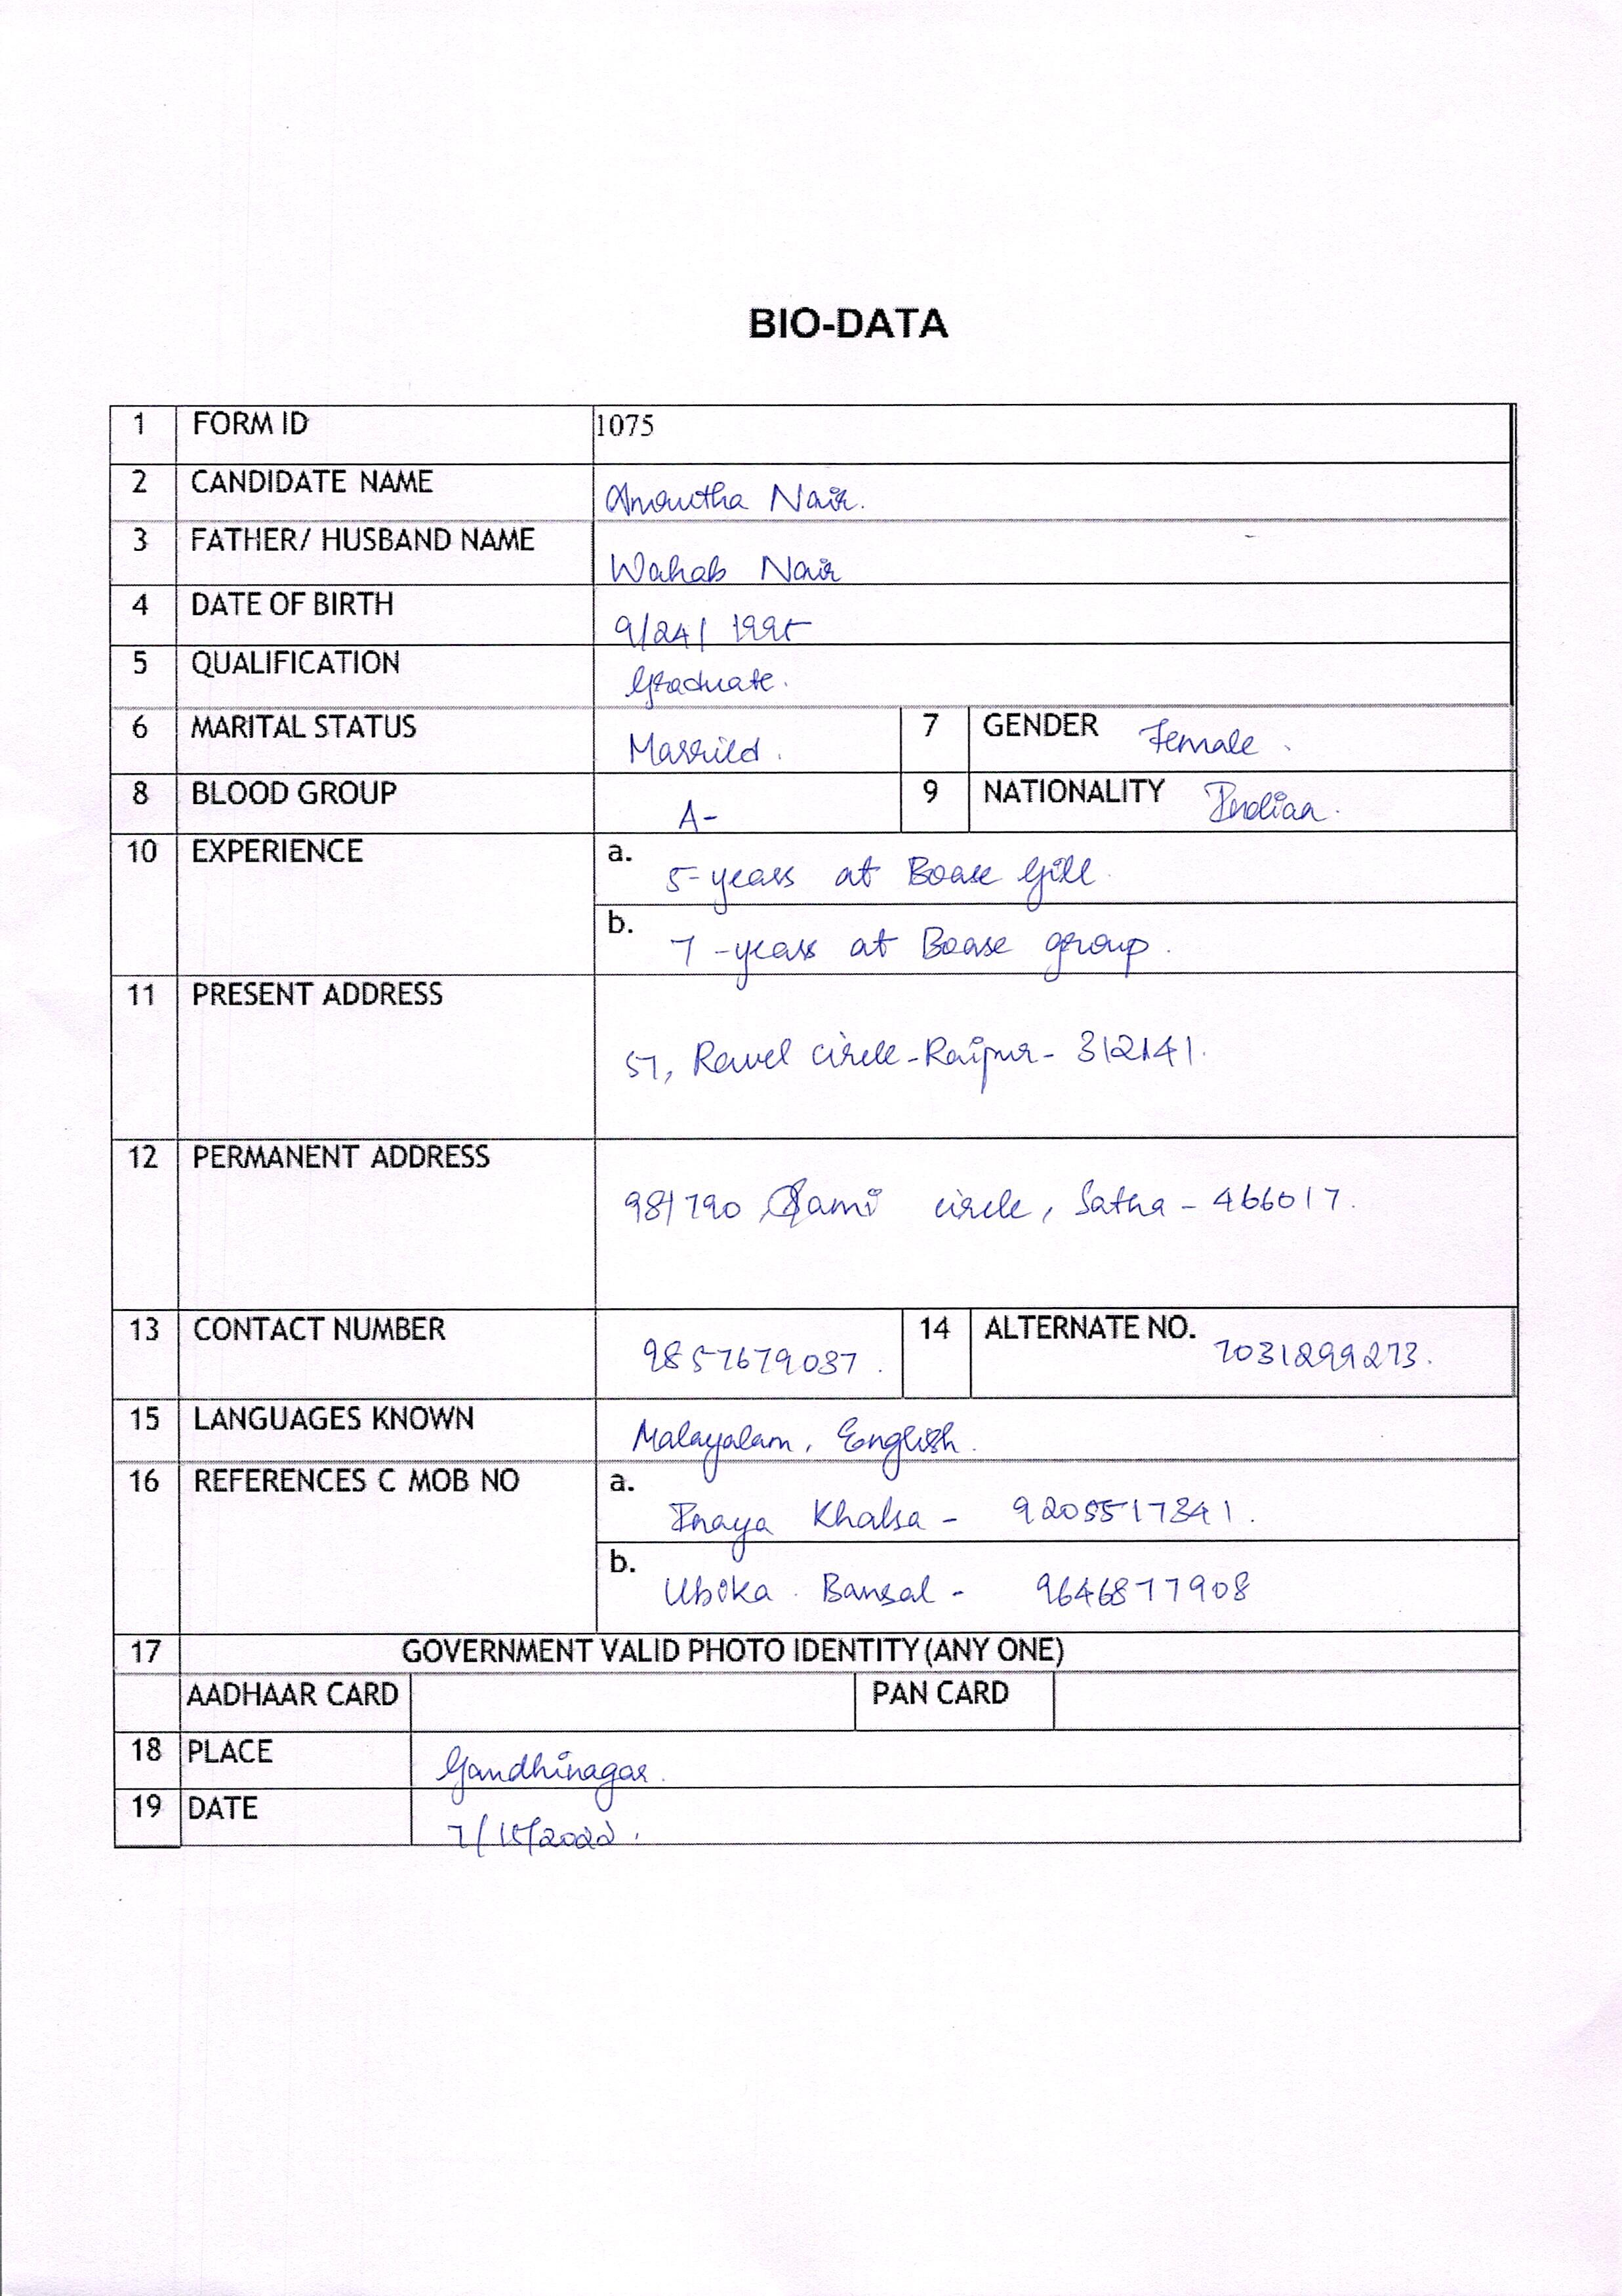 BIO-DATA
1 FORM ID 1075
2 CANDIDATE NAME Nair.
3 FATHER/ HUSBAND NAME Wahab Nair
4 DATE OF BIRTH 9/24/ 1995
5 QUALIFICATION Graduate.
6 MARITAL STATUS Married. 7 GENDER Female.
8 BLOOD GROUP A- 9 NATIONALITY Indian.
10 EXPERIENCE a. 5-years at Boase Gill.
b. 7-years at Boase group.
11 PRESENT ADDRESS 57, circle-Raipur- 312141.
12 PERMANENT ADDRESS 98/790 circle, Satna - 466017.
13 CONTACT NUMBER 9857679037. 14 ALTERNATE NO. 7031299273.
15 LANGUAGES KNOWN Malayalam, English.
16 REFERENCES C MOB NO a. Inaya Khalsa - 9205517341.
b. Bansal - 9646877908
17 GOVERNMENT VALID PHOTO IDENTITY (ANY ONE)
AADHAAR CARD PAN CARD
18 PLACE Gandhinagar.
19 DATE 7/15/2022.